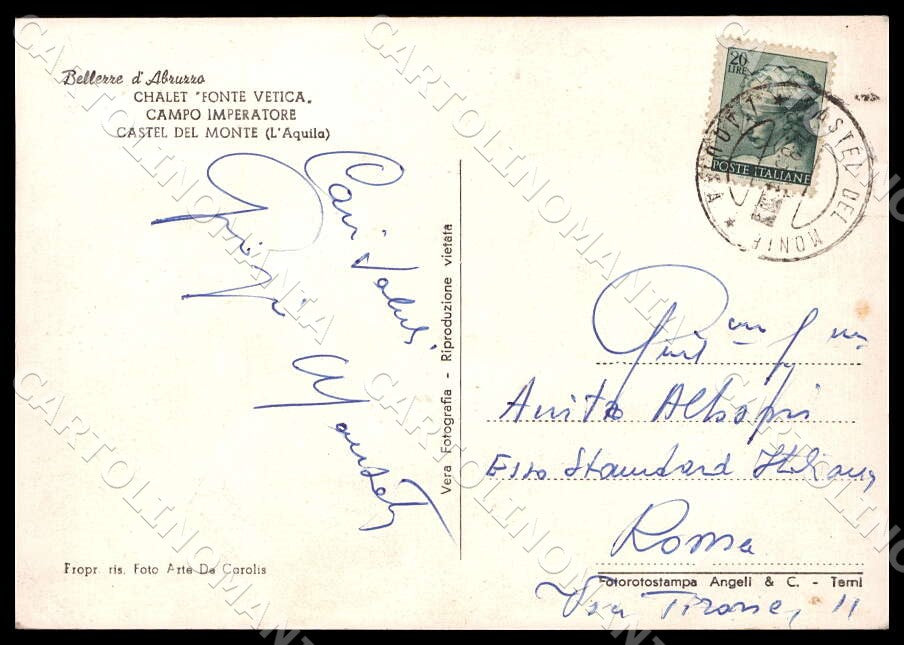 Bellezze d'Abruzzo
CHALET "FONTE VETICA"
CAMPO IMPERATORE
CASTEL DEL MONTE (L'Aquila)
Cari saluti
Vera Fotografia - Riproduzione vietata
Propr. ris. Foto Arte De Carolis
20
LIRE
POSTE ITALIANE
CASTEL DEL MONTE
Anita
Esso Standard Italiana
Roma
Fotorotostampa Angeli & C. - Terni
Via 11
CARTOLINOMANIA